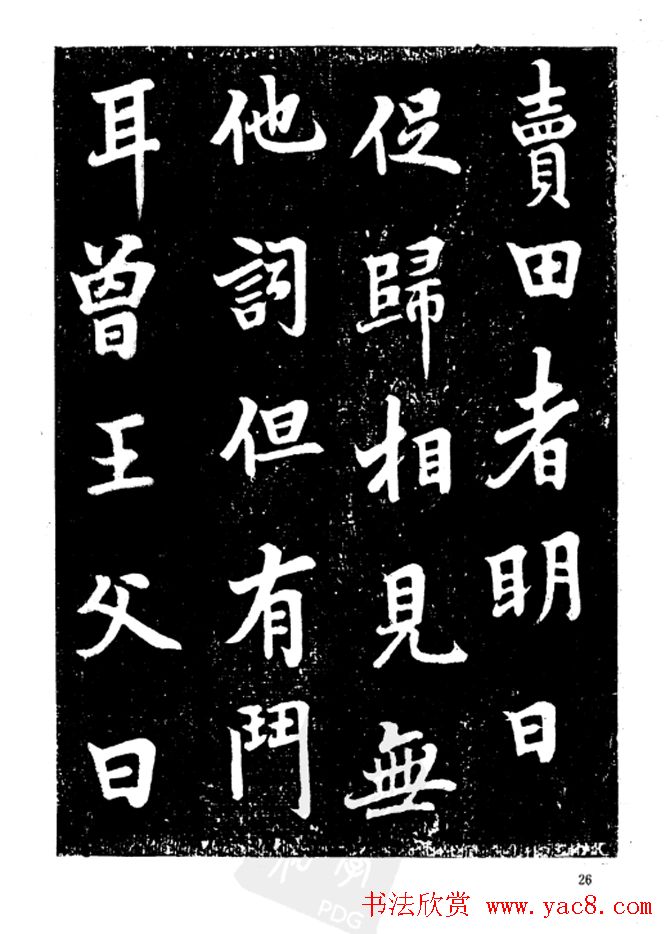 賣田者明日
促歸相見無
他詞但有鬥
耳曾王父曰
26
书法欣赏 www.yac8.com
PDG